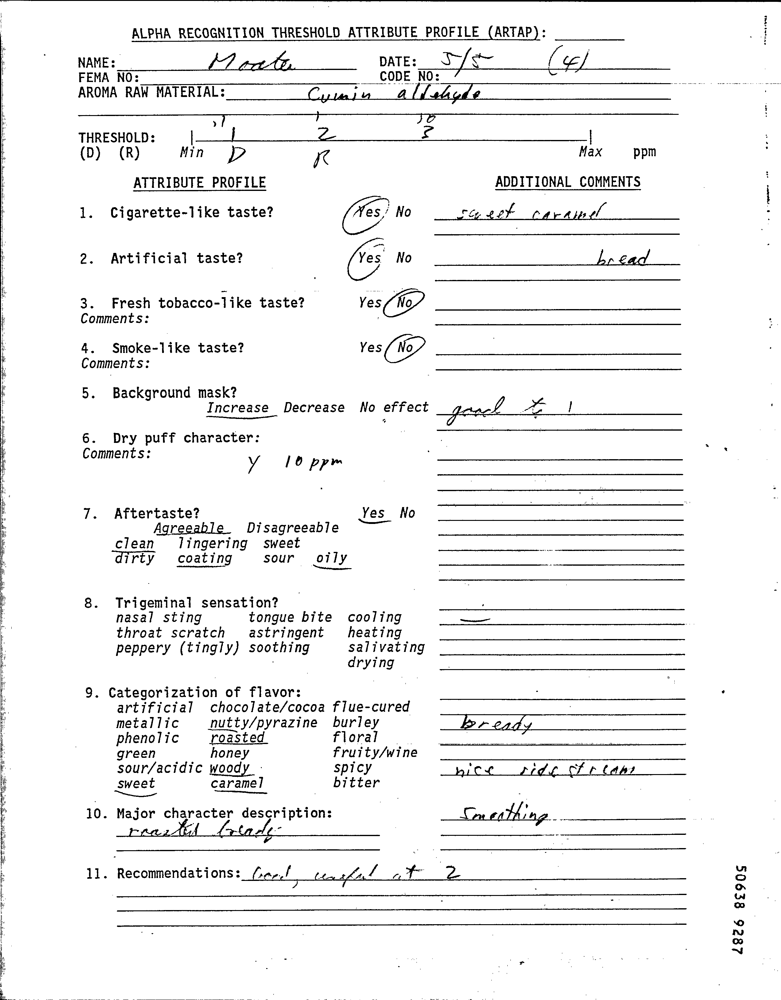 ALPHA RECOGNITION THRESHOLD ATTRIBUTE PROFILE (ARTAP):
NAME: DATE: 5/5 (4)
FEMA NO: CODE NO:
AROMA RAW MATERIAL: Cumin aldehyde
.1 1 10
THRESHOLD: 2 3
(D) (R) Min D R Max ppm
ATTRIBUTE PROFILE ADDITIONAL COMMENTS
1. Cigarette-like taste? Yes No sweet caramel
2. Artificial taste? Yes No bread
3. Fresh tobacco-like taste? Yes No
Comments:
4. Smoke-like taste? Yes No
Comments:
5. Background mask?
Increase Decrease No effect good to 1
6. Dry puff character:
Comments:
Y 10 ppm
7. Aftertaste? Yes No
Agreeable Disagreeable
clean lingering sweet
dirty coating sour oily
8. Trigeminal sensation?
nasal sting tongue bite cooling
throat scratch astringent heating
peppery (tingly) soothing salivating
drying
9. Categorization of flavor:
artificial chocolate/cocoa flue-cured
metallic nutty/pyrazine burley bready
phenolic roasted floral
green honey fruity/wine
sour/acidic woody spicy nice side stream
sweet caramel bitter
10. Major character description: Smoothing
roasted bready
11. Recommendations: Good, useful at 2
50638 9287